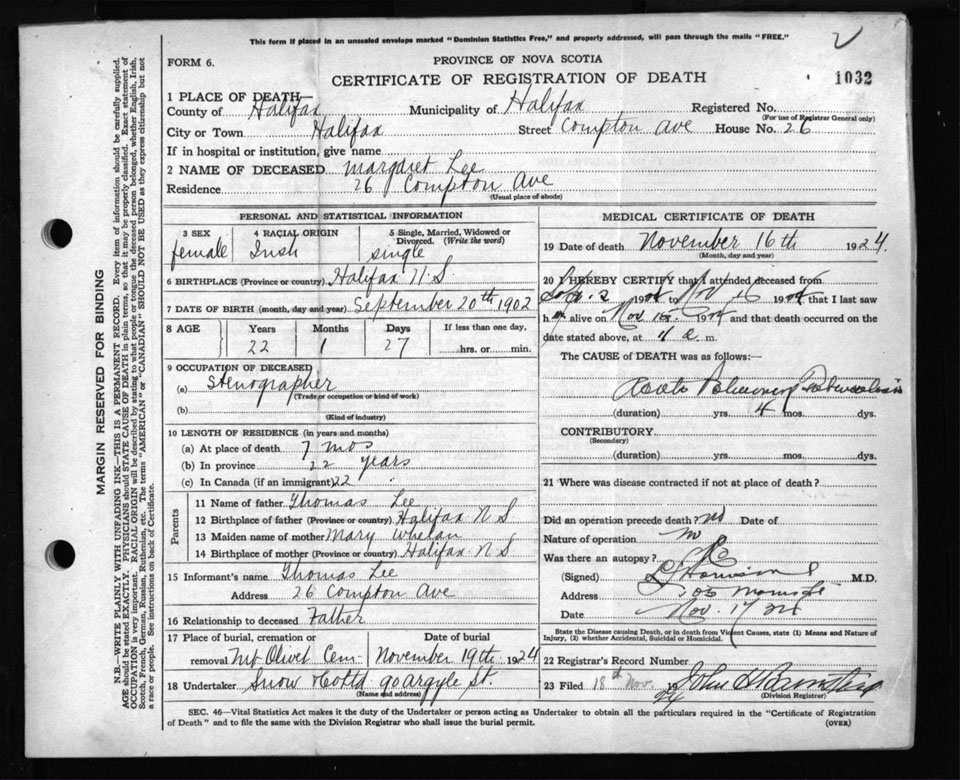 This form if placed in an unsealed envelope marked "Dominion Statistics Free," and properly addressed, will pass through the mails "FREE."
FORM 6.
PROVINCE OF NOVA SCOTIA
CERTIFICATE OF REGISTRATION OF DEATH
1032
1 PLACE OF DEATH—
County of Halifax Municipality of Halifax Registered No.
(For use of Registrar General only)
City or Town Halifax Street Compton Ave House No. 26
If in hospital or institution, give name
2 NAME OF DECEASED Margaret Lee
Residence 26 Compton Ave
(Usual place of abode)
PERSONAL AND STATISTICAL INFORMATION
3 SEX female
4 RACIAL ORIGIN Irish
5 Single, Married, Widowed or Divorced. (Write the word) single
6 BIRTHPLACE (Province or country) Halifax N S
7 DATE OF BIRTH (month, day and year) September 20th 1902
8 AGE Years Months Days If less than one day,
22 1 27 hrs. or min.
9 OCCUPATION OF DECEASED
(a) Stenographer
(Trade or occupation or kind of work)
(b)
(Kind of industry)
10 LENGTH OF RESIDENCE (in years and months)
(a) At place of death 7 mos
(b) In province 22 years
(c) In Canada (if an immigrant) 22
Parents
11 Name of father Thomas Lee
12 Birthplace of father (Province or country) Halifax N S
13 Maiden name of mother Mary Whelan
14 Birthplace of mother (Province or country) Halifax N S
15 Informant's name Thomas Lee
Address 26 Compton Ave
16 Relationship to deceased Father
17 Place of burial, cremation or removal Mt Olivet Cem
Date of burial November 19th 1924
18 Undertaker Snow & Co Ltd 90 Argyle St.
(Name and address)
MEDICAL CERTIFICATE OF DEATH
19 Date of death November 16th 1924.
(Month, day and year)
20 I HEREBY CERTIFY that I attended deceased from
2 1924 to Nov 16 1924 that I last saw
h alive on Nov 15 1924 and that death occurred on the
date stated above, at m.
The CAUSE of DEATH was as follows:
Pulmonary Tuberculosis
(duration) yrs. 4 mos. dys.
CONTRIBUTORY
(Secondary)
(duration) yrs. mos. dys.
21 Where was disease contracted if not at place of death?
Did an operation precede death? no Date of
Nature of operation
Was there an autopsy?
(Signed) M.D.
Address
Date Nov. 17 24
State the Disease causing Death, or in death from Violent Causes, state (1) Means and Nature of
Injury, (2) whether Accidental, Suicidal or Homicidal.
22 Registrar's Record Number
23 Filed 18th Nov. 19 John
(Division Registrar)
SEC. 46—Vital Statistics Act makes it the duty of the Undertaker or person acting as Undertaker to obtain all the particulars required in the "Certificate of Registration
of Death" and to file the same with the Division Registrar who shall issue the burial permit.
(OVER)
MARGIN RESERVED FOR BINDING
N.B.—WRITE PLAINLY WITH UNFADING INK—THIS IS A PERMANENT RECORD. Every item of information should be carefully supplied.
AGE should be stated EXACTLY. PHYSICIANS should STATE CAUSE OF DEATH in plain terms, so that it may be properly classified. Exact statement of
OCCUPATION is very important. RACIAL ORIGIN will be described by stating to what people or tongue the deceased person belonged, whether English, Irish,
Scotch, French, German, Russian, Ruthenian, etc. The terms "AMERICAN" or "CANADIAN" SHOULD NOT BE USED as they express citizenship but not
a race or people. See instructions on back of Certificate.